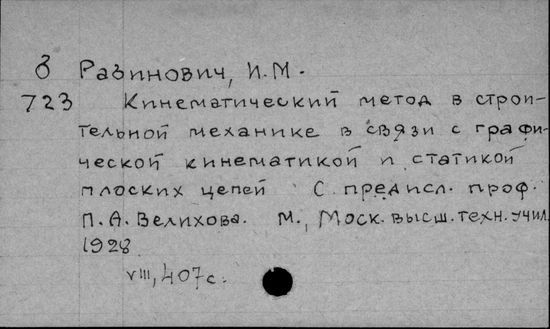 З Рабинович, И.М.
723 Кинематический метод в строи-
тельной механике в связи с графи-
ческой кинематикой и статикой
плоских цепей С предисл. проф.
П.А. Велихова. М., Моск. высш. техн. учил.
1928
VIII, 407с.